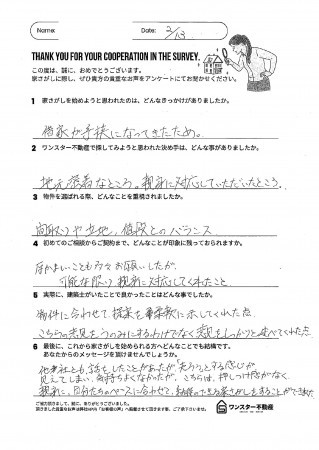 Name:
Date: 2/13
THANK YOU FOR YOUR COOPERATION IN THE SURVEY.
この度は、誠に、おめでとうございます。
家さがしに際し、ぜひ貴方の貴重なお声をアンケートにてお聞かせください。
1 家さがしを始めようと思われたのは、どんなきっかけがありましたか。
借家が手狭になってきたため。
2 ワンスター不動産で探してみようと思われた決め手は、どんな事がありましたか。
地元密着なところ。親身に対応していただいたところ。
3 物件を選ばれる際、どんなことを重視されましたか。
間取りや立地、値段とのバランス
4 初めてのご相談からご契約まで、どんなことが印象に残っておられますか。
細かいことも多々お願いしたが、
可能な限り親身に対応してくれたこと
5 実際に、建築士がいたことで良かったことはどんな事でしたか。
物件に合わせて提案を事柔軟に示してくれた点。
こちらの意見をうのみにするわけでなく意見をしっかりと述べてくれた点
6 最後に、これから家さがしを始められる方へどんなことでも結構です。
あなたからのメッセージを頂けませんでしょうか。
他業社とも話をしたことがあったが「売ろう」とする感じが
見えてしまい、気持ちよくなかったが、こちらは、押しつけ感がなく、
親身に、自分たちのペースに合わせて、納得のできる家さがしをすることができました
ご協力頂きまして、誠に、ありがとうございました。
ワンスター不動産